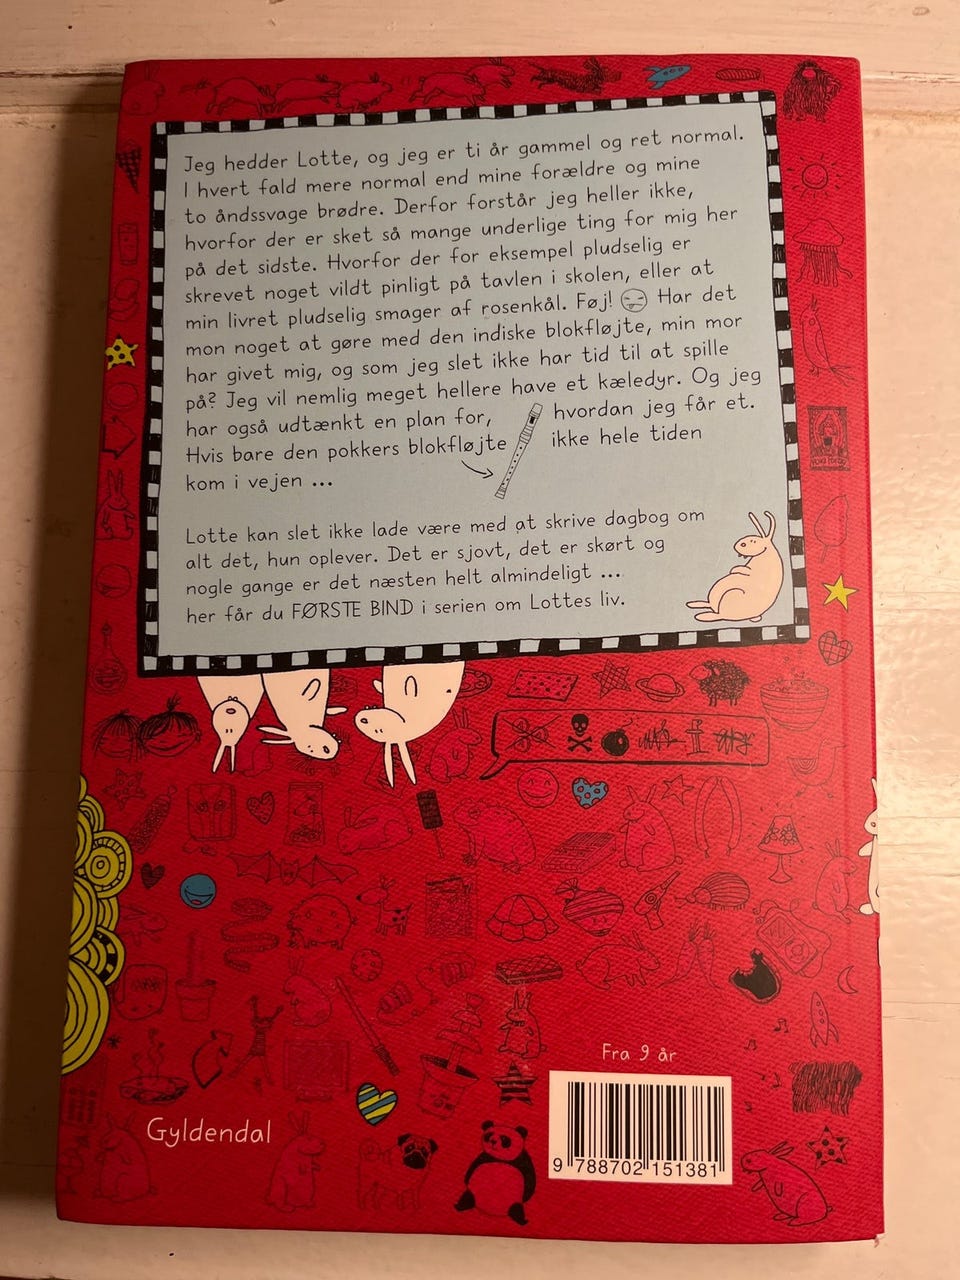 Jeg hedder Lotte, og jeg er ti år gammel og ret normal.
I hvert fald mere normal end mine forældre og mine
to åndssvage brødre. Derfor forstår jeg heller ikke,
hvorfor der er sket så mange underlige ting for mig her
på det sidste. Hvorfor der for eksempel pludselig er
skrevet noget vildt pinligt på tavlen i skolen, eller at
min livret pludselig smager af rosenkål. Føj! Har det
mon noget at gøre med den indiske blokfløjte, min mor
har givet mig, og som jeg slet ikke har tid til at spille
på? Jeg vil nemlig meget hellere have et kæledyr. Og jeg
har også udtænkt en plan for, hvordan jeg får et.
Hvis bare den pokkers blokfløjte ikke hele tiden
kom i vejen ...
Lotte kan slet ikke lade være med at skrive dagbog om
alt det, hun oplever. Det er sjovt, det er skørt og
nogle gange er det næsten helt almindeligt ...
her får du FØRSTE BIND i serien om Lottes liv.
Fra 9 år
Gyldendal
9 788702 151381